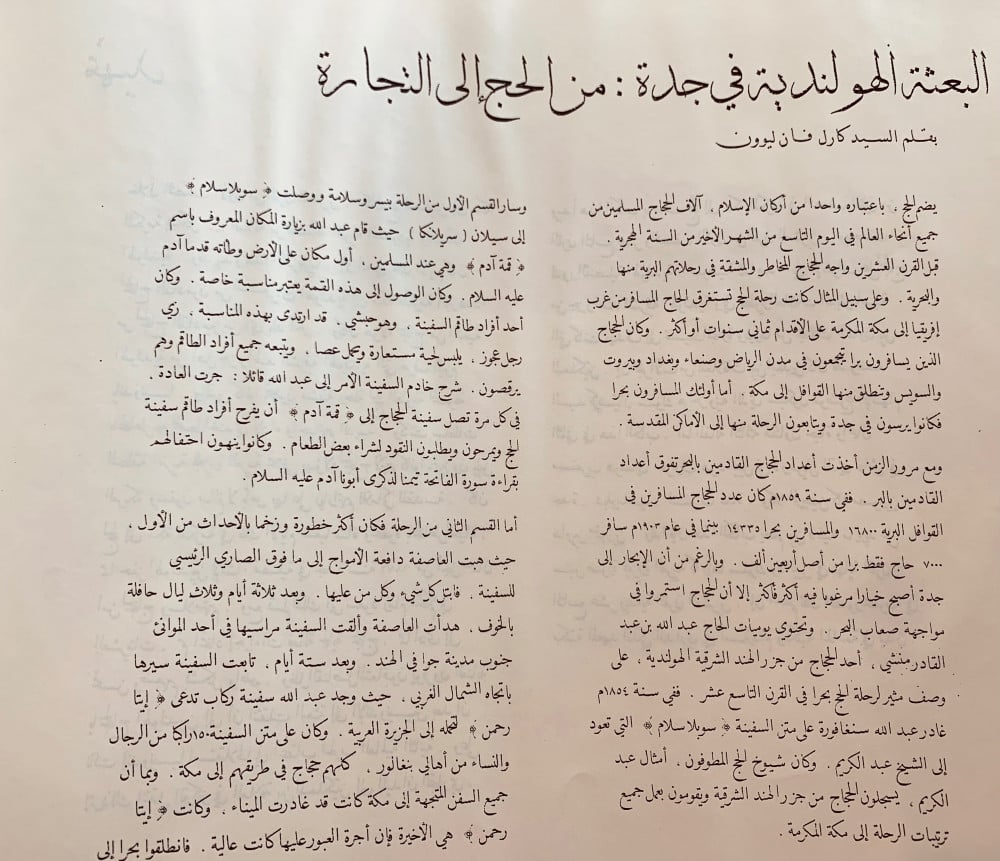 البعثة الهولندية في جدة : من الحج إلى التجارة
بقلم السيد كارل فان ليوون
يضم الحج ، باعتباره واحدا من أركان الإسلام ، آلاف الحجاج المسلمين من
جميع أنحاء العالم في اليوم التاسع من الشهر الأخير من السنة الهجرية .
قبل القرن العشرين واجه الحجاج المخاطر والمشقة في رحلاتهم البرية منها
والبحرية . وعلى سبيل المثال كانت رحلة الحج تستغرق الحاج المسافر من غرب
إفريقيا إلى مكة المكرمة على الأقدام ثماني سنوات أو أكثر . وكان الحجاج
الذين يسافرون برا يتجمعون في مدن الرياض وصنعاء وبغداد وبيروت
والسويس وتنطلق منها القوافل إلى مكة . أما أولئك المسافرون بحرا
فكانوا يرسون في جدة ويتابعون الرحلة منها إلى الأماكن المقدسة .
ومع مرور الزمن أخذت أعداد الحجاج القادمين بالبحر تفوق أعداد
القادمين بالبر . ففي سنة ١٨٥٩م كان عدد الحجاج المسافرين في
القوافل البرية ١٦٨٠٠ والمسافرين بحرا ١٤٣٣٥ بينما في عام ١٩٠٣م سافر
٧٠٠٠ حاج فقط برا من أصل أربعين ألف . وبالرغم من أن الإبحار إلى
جدة أصبح خيارا مرغوبا فيه أكثر فأكثر إلا أن الحجاج استمروا في
مواجهة صعاب البحر . وتحتوي يوميات الحاج عبد الله بن عبد
القادر منشي ، أحد الحجاج من جزر الهند الشرقية الهولندية ، على
وصف مثير لرحلة الحج بحرا في القرن التاسع عشر . ففي سنة ١٨٥٤م
غادر عبد الله سنغافورة على متن السفينة ﴿ سوبلاسلام ﴾ التي تعود
إلى الشيخ عبد الكريم . وكان شيوخ الحج المطوفون ، أمثال عبد
الكريم ، يسجلون الحجاج من جزر الهند الشرقية ويقومون بعمل جميع
ترتيبات الرحلة إلى مكة المكرمة .
وسار القسم الأول من الرحلة بيسر وسلامة ووصلت ﴿ سوبلاسلام ﴾
إلى سيلان ( سريلانكا ) حيث قام عبد الله بزيارة المكان المعروف باسم
﴿ قمة آدم ﴾ وهي عند المسلمين ، أول مكان على الأرض وطأته قدما آدم
عليه السلام . وكان الوصول إلى هذه القمة يعتبر مناسبة خاصة . وكان
أحد أفراد طاقم السفينة ، وهو حبشي ، قد ارتدى بهذه المناسبة ، زي
رجل عجوز ، يلبس لحية مستعارة ويحمل عصا ، ويتبعه جميع أفراد الطاقم وهم
يرقصون . شرح خادم السفينة الأمر إلى عبد الله قائلا : جرت العادة ،
في كل مرة تصل سفينة الحجاج إلى ﴿ قمة آدم ﴾ أن يفرح أفراد طاقم سفينة
الحج ويمرحون ويطلبون النقود لشراء بعض الطعام . وكانوا ينهون احتفالهم
بقراءة سورة الفاتحة تيمنا لذكرى أبونا آدم عليه السلام .
أما القسم الثاني من الرحلة فكان أكثر خطورة وزخما بالأحداث من الأول ،
حيث هبت العاصفة دافعة الأمواج إلى ما فوق الصاري الرئيسي
للسفينة . فابتل كل شيء وكل من عليها . وبعد ثلاثة أيام وثلاث ليال حافلة
بالخوف ، هدأت العاصفة وألقت السفينة مراسيها في أحد الموانئ
جنوب مدينة جوا في الهند . وبعد ستة أيام ، تابعت السفينة سيرها
باتجاه الشمال الغربي ، حيث وجد عبد الله سفينة ركاب تدعى ﴿ إيتا
رحمن ﴾ لتحمله إلى الجزيرة العربية . وكان على متن السفينة ١٥٠ راكبا من الرجال
والنساء من أهالي بنغالور ، كلهم حجاج في طريقهم إلى مكة . وبما أن
جميع السفن المتجهة إلى مكة كانت قد غادرت الميناء ، وكانت ﴿ إيتا
رحمن ﴾ هي الأخيرة فإن أجرة العبور عليها كانت عالية . فانطلقوا بحرا إلى